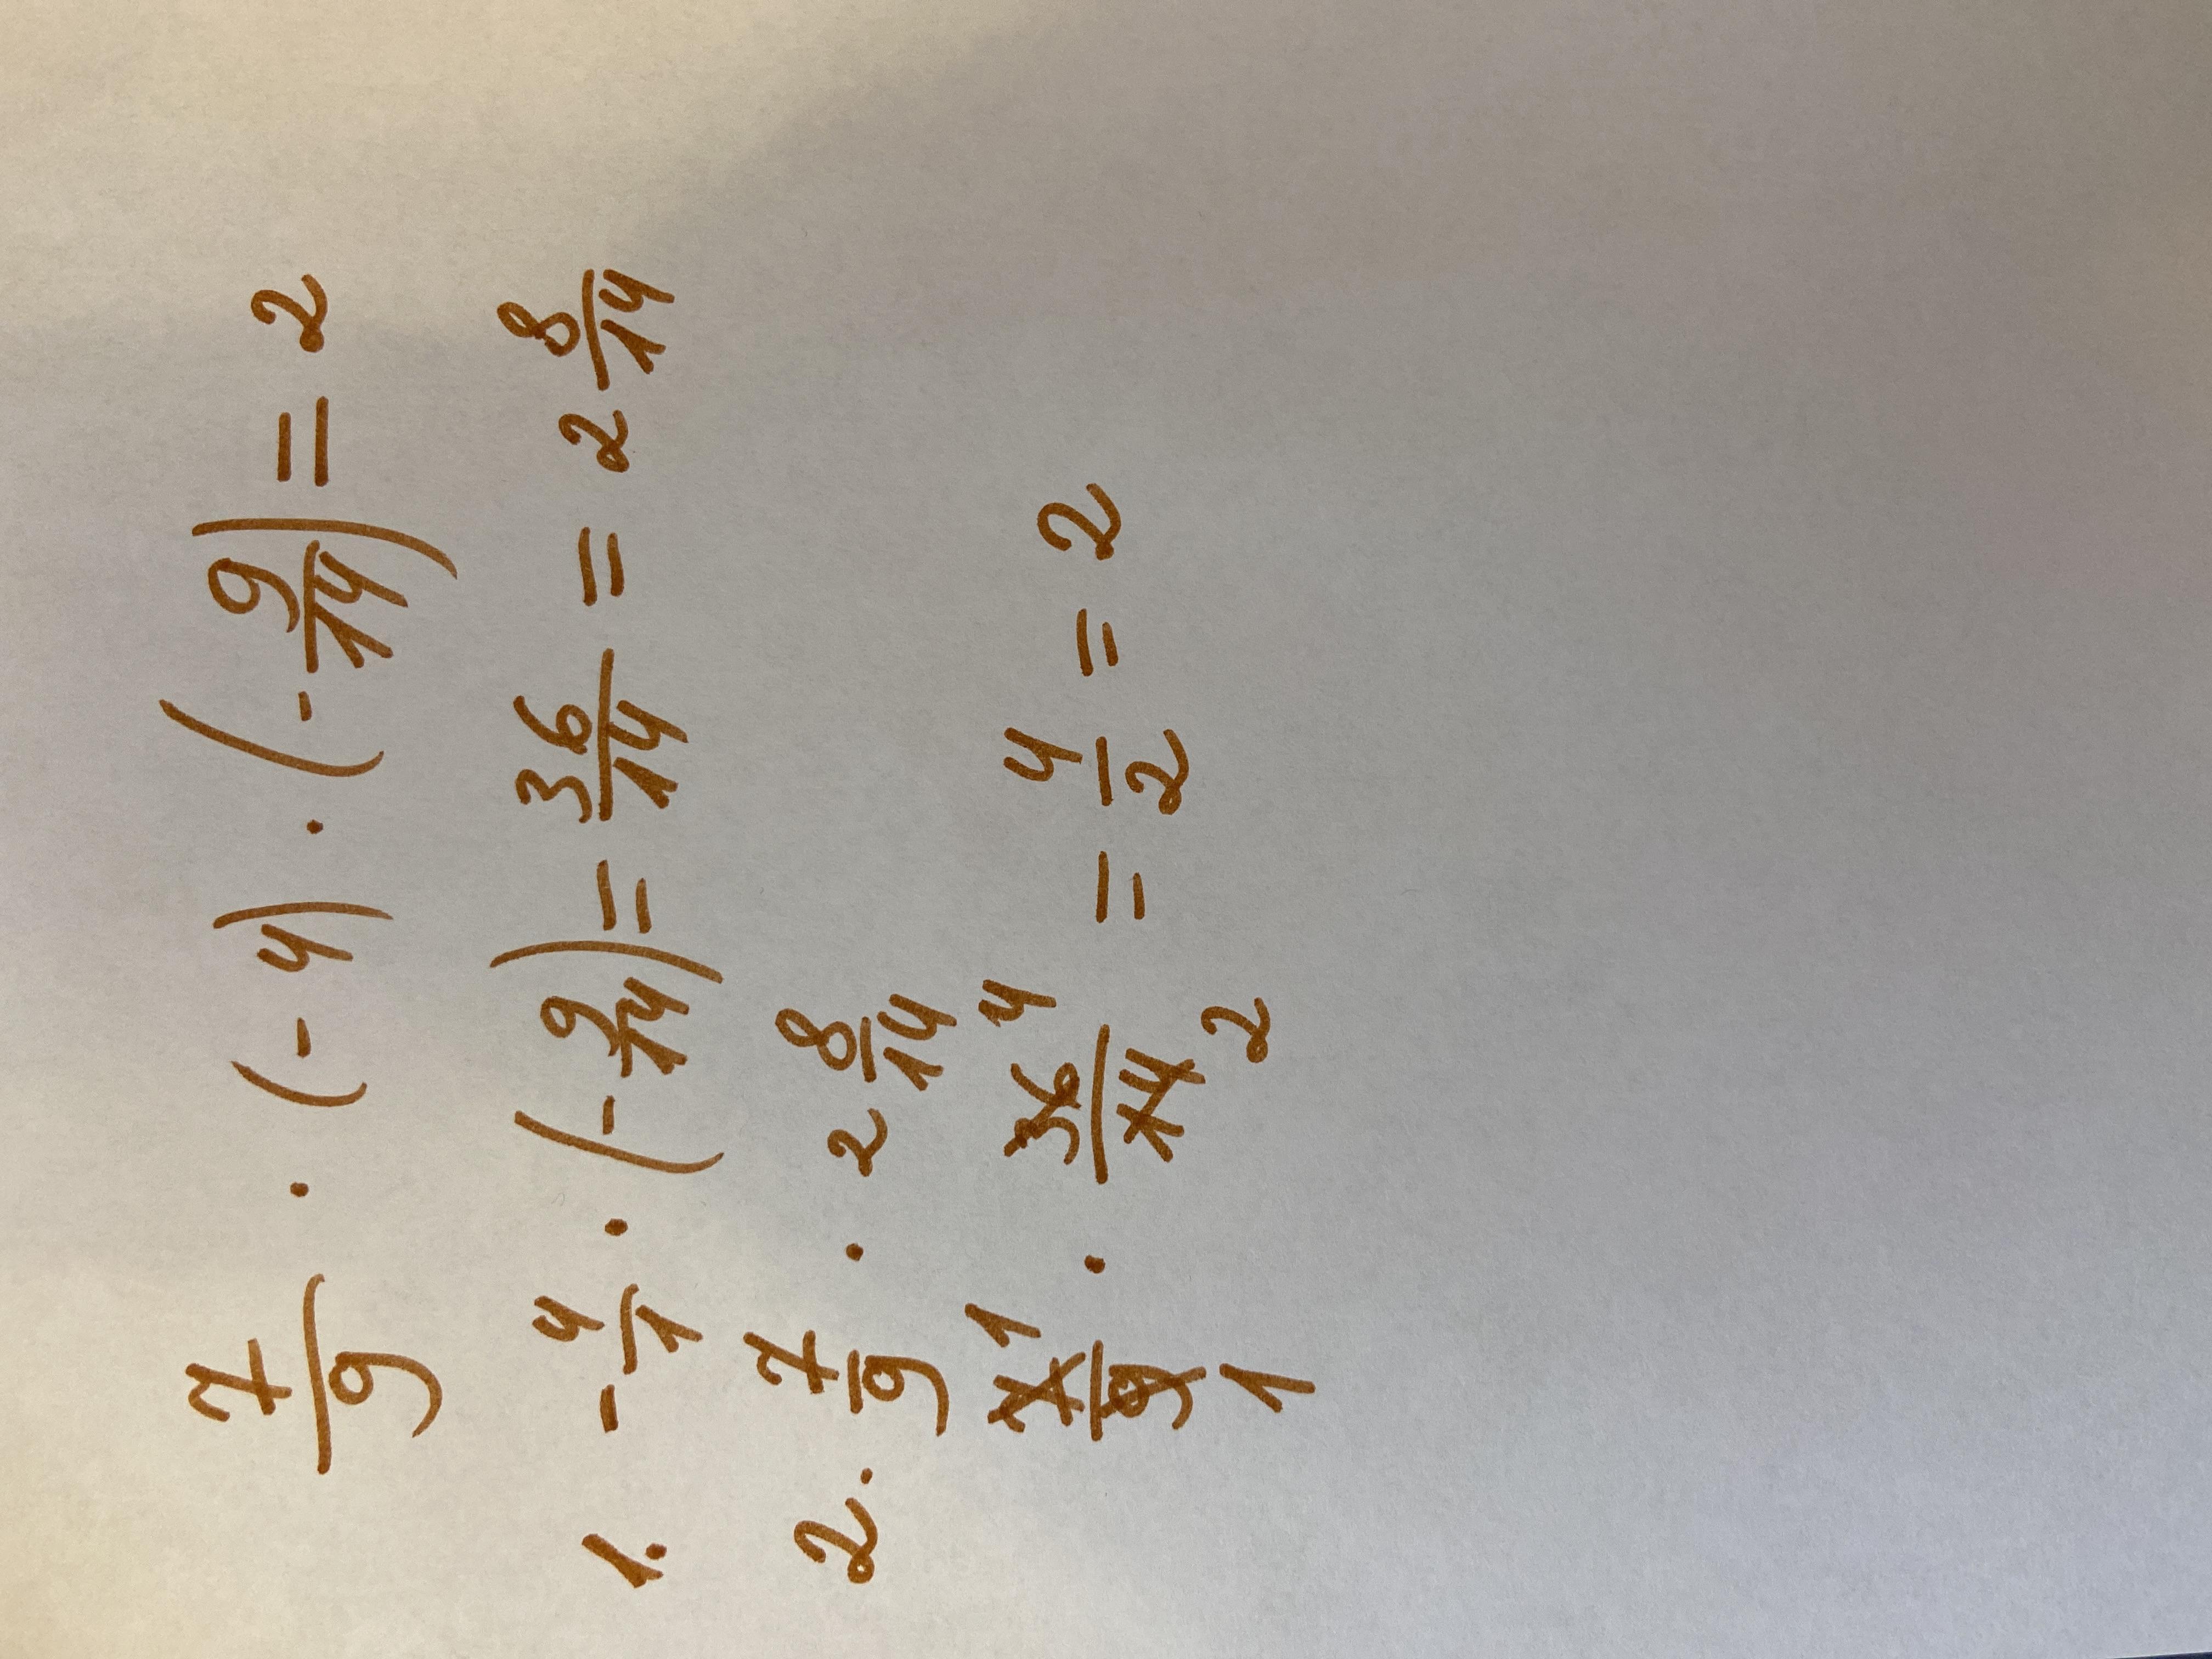 7/9 · (-4) · (-9/14) = 2
1. -4/1 · (-9/14) = 36/14 = 2 8/14
2. 7/9 · 2 8/14
7/9 1 1 · 36/14 4 2 = 4/2 = 2